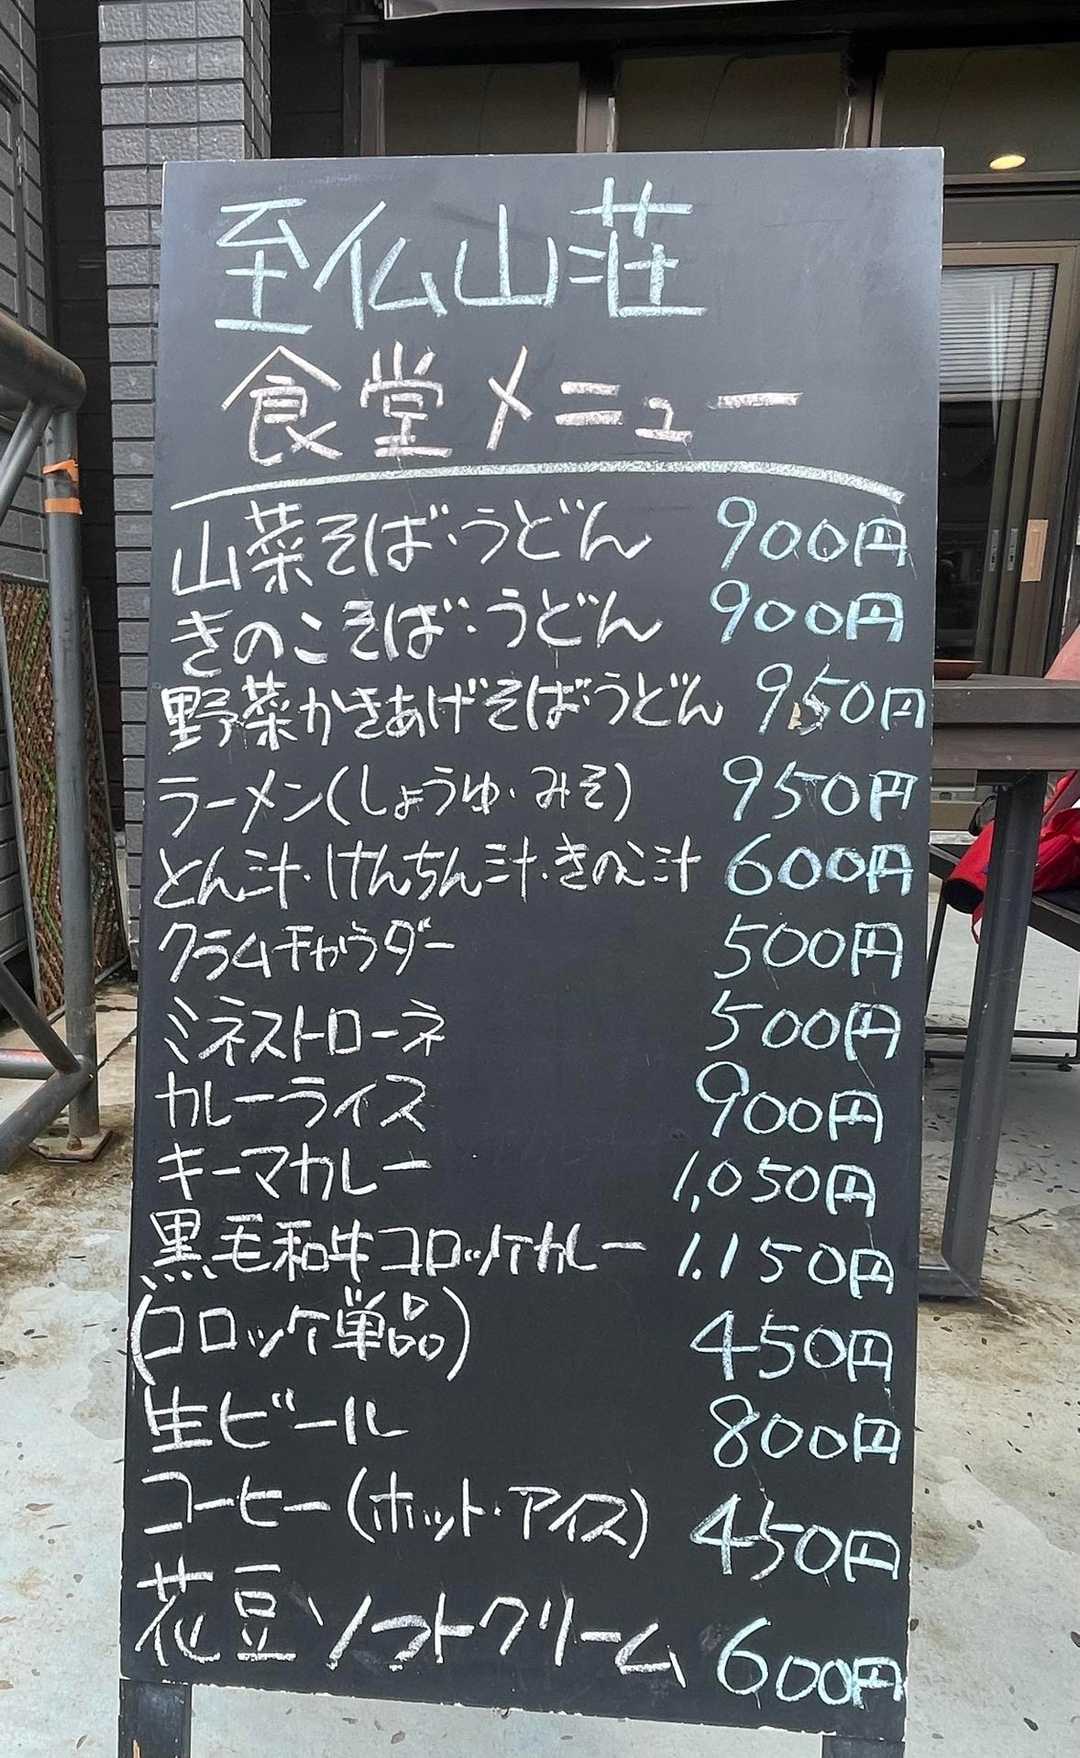 至仏山荘
食堂メニュー
山菜そば・うどん 900円
きのこそば・うどん 900円
野菜かきあげそば・うどん 950円
ラーメン(しょうゆ・みそ) 950円
とん汁・けんちん汁・きのこ汁 600円
クラムチャウダー 500円
ミネストローネ 500円
カレーライス 900円
キーマカレー 1,050円
黒毛和牛コロッケカレー 1.150円
(コロッケ単品) 450円
生ビール 800円
コーヒー(ホット・アイス) 450円
花豆ソフトクリーム 600円